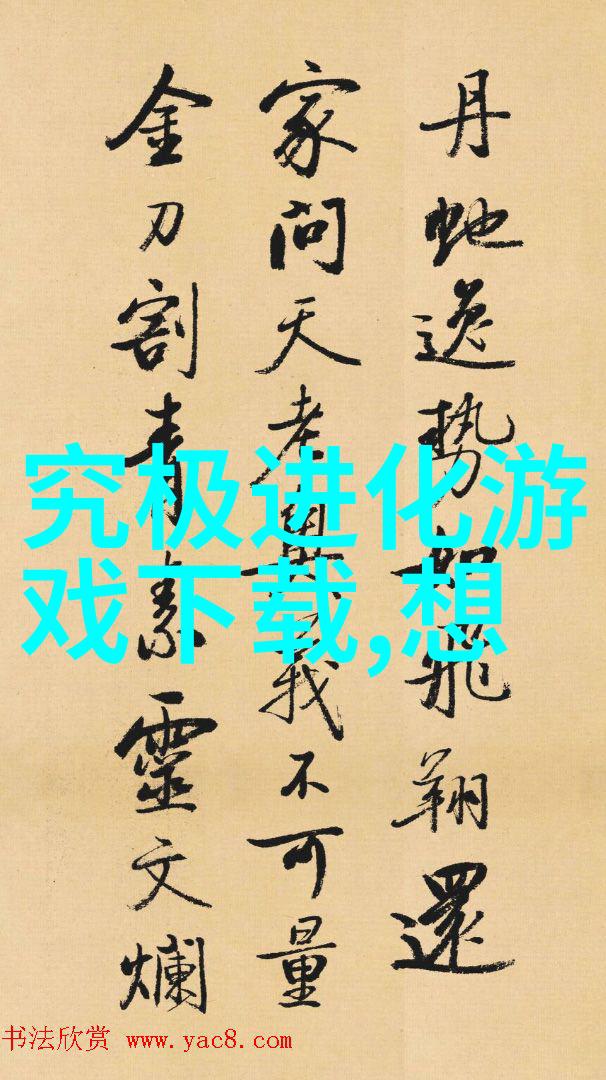 丹虵逸势如飛翔還
家問天老與我不可量
金刀割青素靈文爛
究极进化游
戏下载,想
书法欣赏 www.yac8.com